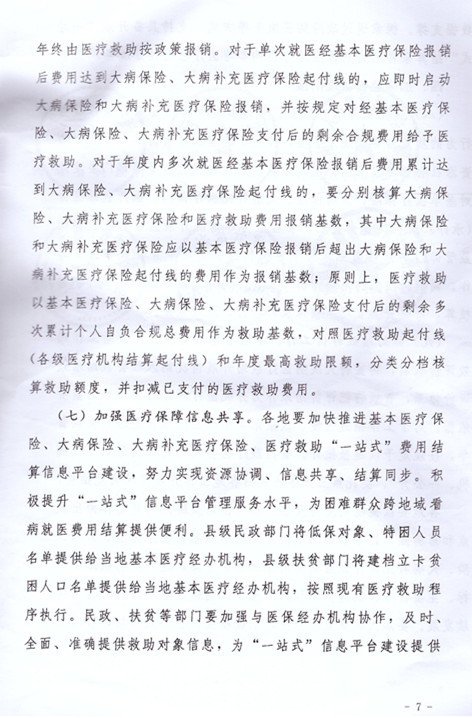 年终由医疗救助按政策报销。对于单次就医经基本医疗保险报销
后费用达到大病保险、大病补充医疗保险起付线的，应即时启动
大病保险和大病补充医疗保险报销，并按规定对经基本医疗保
险、大病保险、大病补充医疗保险支付后的剩余合规费用给予医
疗救助。对于年度内多次就医经基本医疗保险报销后费用累计达
到大病保险、大病补充医疗保险起付线的，要分别核算大病保
险、大病补充医疗保险和医疗救助费用报销基数，其中大病保险
和大病补充医疗保险应以基本医疗保险报销后超出大病保险和大
病补充医疗保险起付线的费用作为报销基数；原则上，医疗救助
以基本医疗保险、大病保险、大病补充医疗保险支付后的剩余多
次累计个人自负合规总费用作为救助基数，对照医疗救助起付线
（各级医疗机构结算起付线）和年度最高救助限额，分类分档核
算救助额度，并扣减已支付的医疗救助费用。
（七）加强医疗保障信息共享。各地要加快推进基本医疗保
险、大病保险、大病补充医疗保险、医疗救助“一站式”费用结
算信息平台建设，努力实现资源协调、信息共享、结算同步。积
极提升“一站式”信息平台管理服务水平，为困难群众跨地域看
病就医费用结算提供便利。县级民政部门将低保对象、特困人员
名单提供给当地基本医疗经办机构，县级扶贫部门将建档立卡贫
困人口名单提供给当地基本医疗经办机构，按照现有医疗救助程
序执行。民政、扶贫等部门要加强与医保经办机构协作，及时、
全面、准确提供救助对象信息，为“一站式”信息平台建设提供
- 7 -